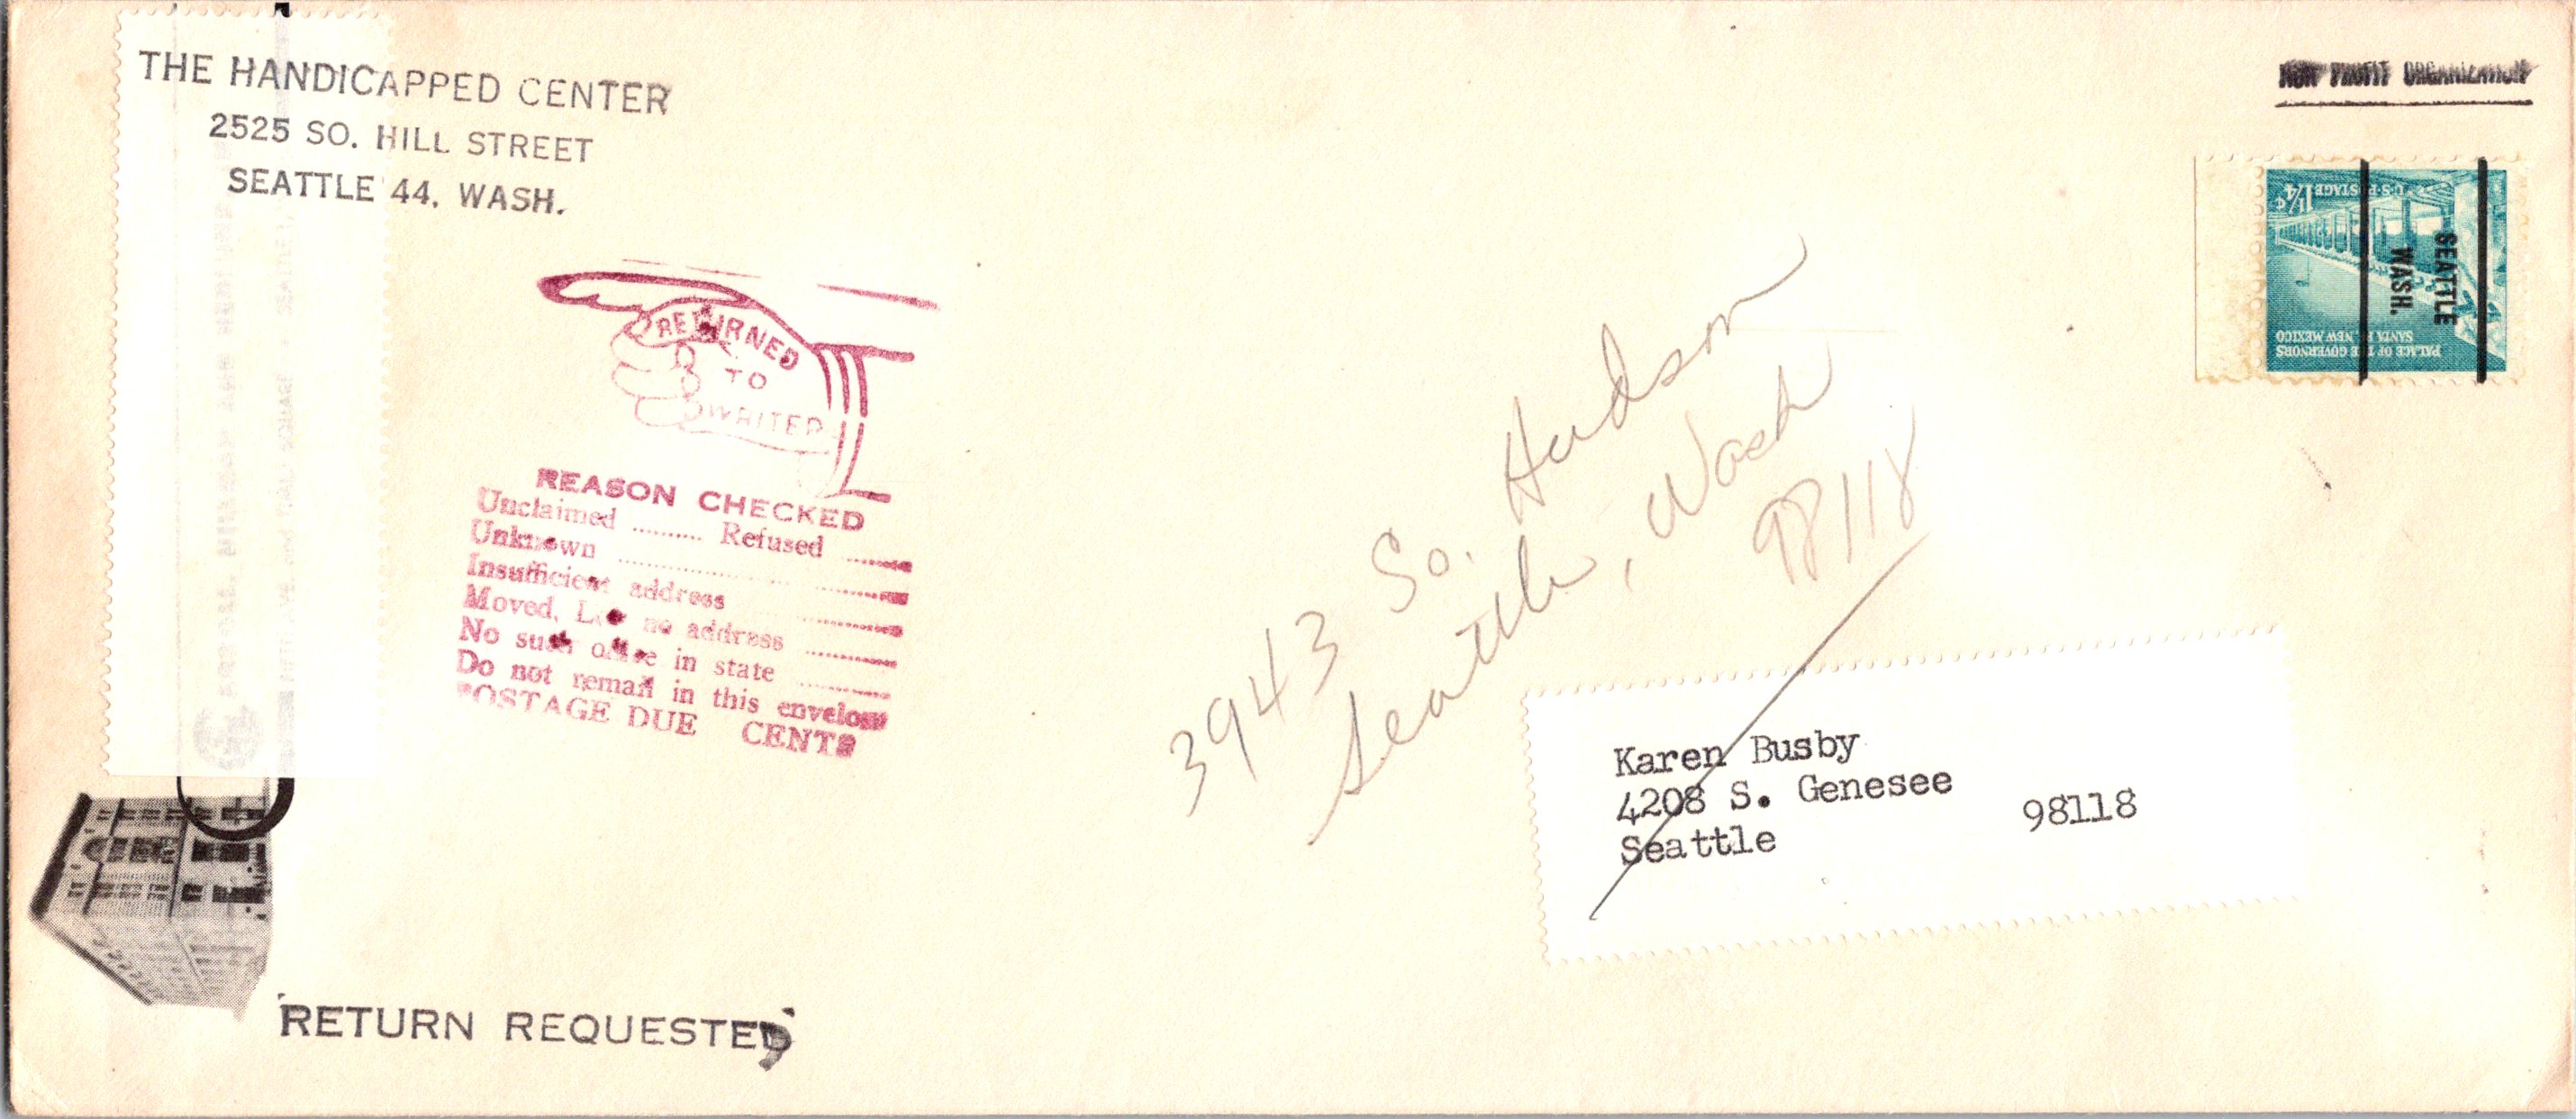 THE HANDICAPPED CENTER
2525 SO. HILL STREET
SEATTLE 44, WASH.
NON PROFIT ORGANIZATION
1¼¢ U·S·POSTAGE
PALACE OF THE GOVERNORS
SANTA FE, NEW MEXICO
SEATTLE
WASH.
RETURNED
TO
WRITER
REASON CHECKED
Unclaimed .......... Refused ..........
Unknown ..........
Insufficient address ..........
Moved, Left no address ..........
No such office in state ..........
Do not remail in this envelope
POSTAGE DUE CENTS
3943 So. Hudson
Seattle, Wash
98118
Karen Busby
4208 S. Genesee
Seattle 98118
RETURN REQUESTED